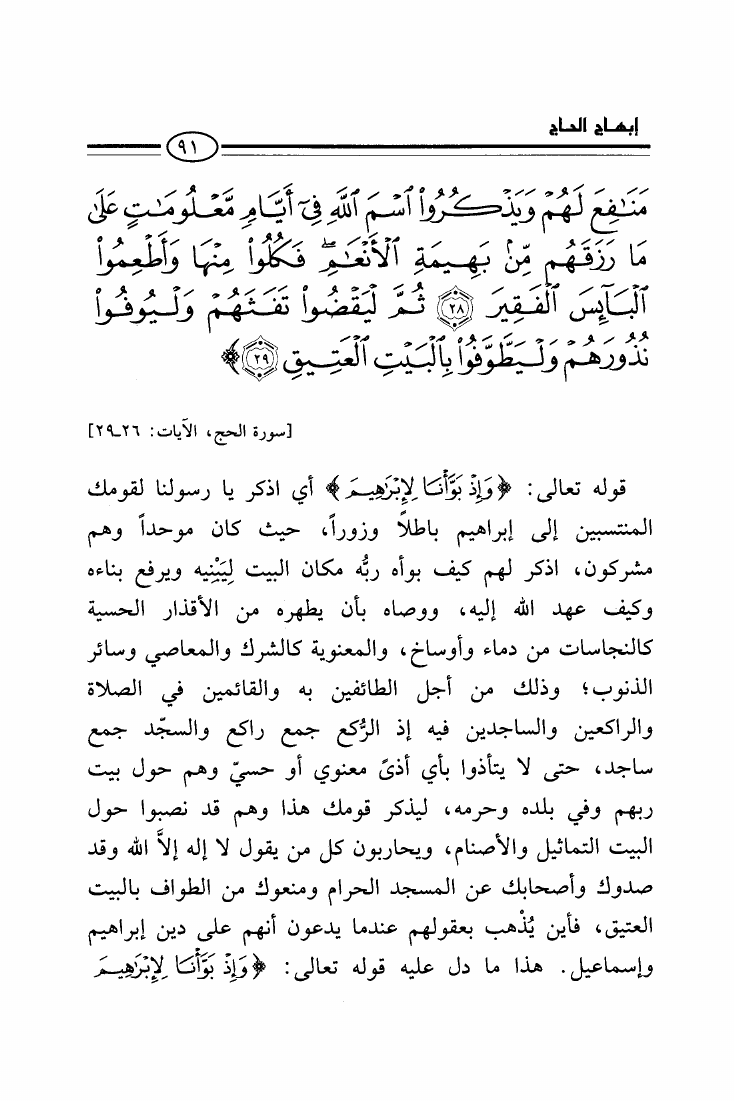 إبهاج الحاج
٩١
مَنَٰفِعَ لَهُمْ وَيَذْكُرُواْ ٱسْمَ ٱللَّهِ فِىٓ أَيَّامٍ مَّعْلُومَٰتٍ عَلَىٰ
مَا رَزَقَهُم مِّنۢ بَهِيمَةِ ٱلْأَنْعَٰمِۖ فَكُلُواْ مِنْهَا وَأَطْعِمُواْ
ٱلْبَآئِسَ ٱلْفَقِيرَ ﴿٢٨﴾ ثُمَّ لْيَقْضُواْ تَفَثَهُمْ وَلْيُوفُواْ
نُذُورَهُمْ وَلْيَطَّوَّفُواْ بِٱلْبَيْتِ ٱلْعَتِيقِ ﴿٢٩﴾﴾
[سورة الحج، الآيات: ٢٦ـ٢٩]
قوله تعالى: ﴿وَإِذْ بَوَّأْنَا لِإِبْرَٰهِيمَ﴾ أي اذكر يا رسولنا لقومك
المنتسبين إلى إبراهيم باطلاً وزوراً، حيث كان موحداً وهم
مشركون، اذكر لهم كيف بوأه ربُّه مكان البيت لِيَبْنِيه ويرفع بناءه
وكيف عهد الله إليه، ووصاه بأن يطهره من الأقذار الحسية
كالنجاسات من دماء وأوساخ، والمعنوية كالشرك والمعاصي وسائر
الذنوب؛ وذلك من أجل الطائفين به والقائمين في الصلاة
والراكعين والساجدين فيه إذ الرُّكع جمع راكع والسجّد جمع
ساجد، حتى لا يتأذوا بأي أذىً معنوي أو حسيّ وهم حول بيت
ربهم وفي بلده وحرمه، ليذكر قومك هذا وهم قد نصبوا حول
البيت التماثيل والأصنام، ويحاربون كل من يقول لا إله إلاَّ الله وقد
صدوك وأصحابك عن المسجد الحرام ومنعوك من الطواف بالبيت
العتيق، فأين يُذْهب بعقولهم عندما يدعون أنهم على دين إبراهيم
وإسماعيل. هذا ما دل عليه قوله تعالى: ﴿وَإِذْ بَوَّأْنَا لِإِبْرَٰهِيمَ